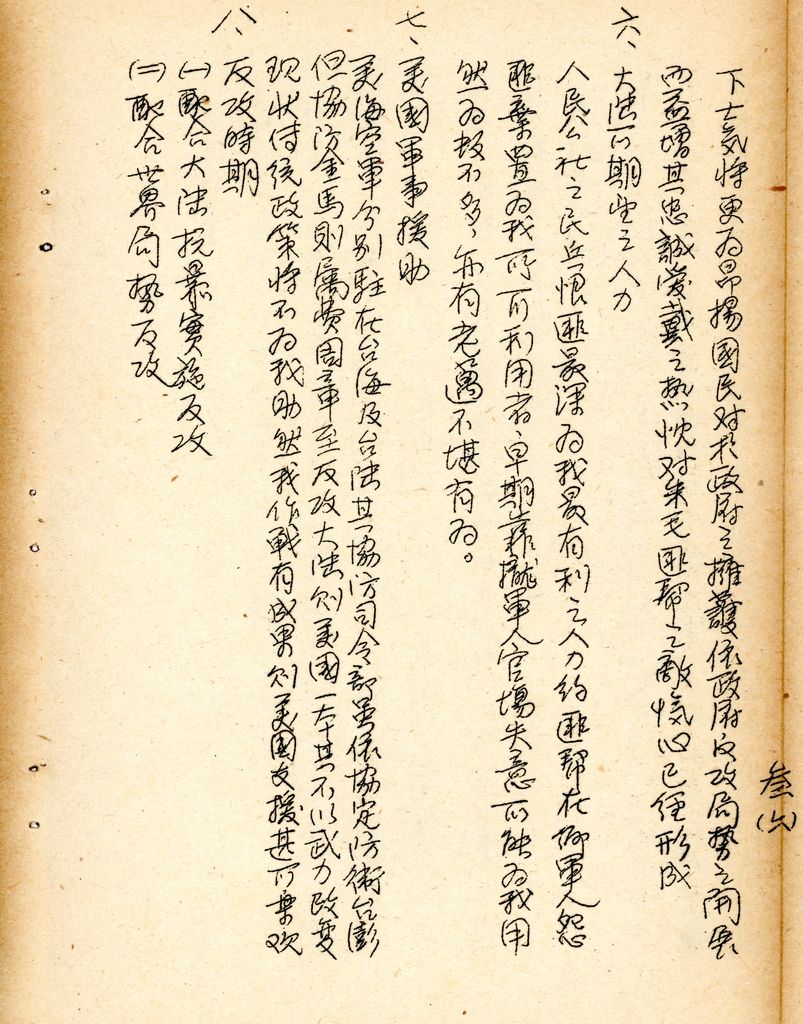 叁(六)
下士気将更為昂揚國民对於政府之擁護依政府反攻局勢之開展
而益增其忠誠愛戴之熱忱对朱毛匪幫之敵愾心已經形成
六、大陆可期望之人力
人民公社之民兵恨匪最深為我最有利之人力約匪幫在鄉軍人怨
匪棄置為我所可利用者、早期靠攏軍人官場失意可能為我用
然為数不多、亦有老邁不堪有為。
七、美國軍事援助
美海空軍分别駐在台海及台陆其協防司令部虽依協定防衛台澎
但協防金馬則屬費周章至反攻大陆则美國一本其不以武力改变
現状傳統政策将不為我助然我作戰有成果则美國支援甚可樂观
八、反攻時期
(一)配合大陆抗暴實施反攻
(二)配合世界局勢反攻